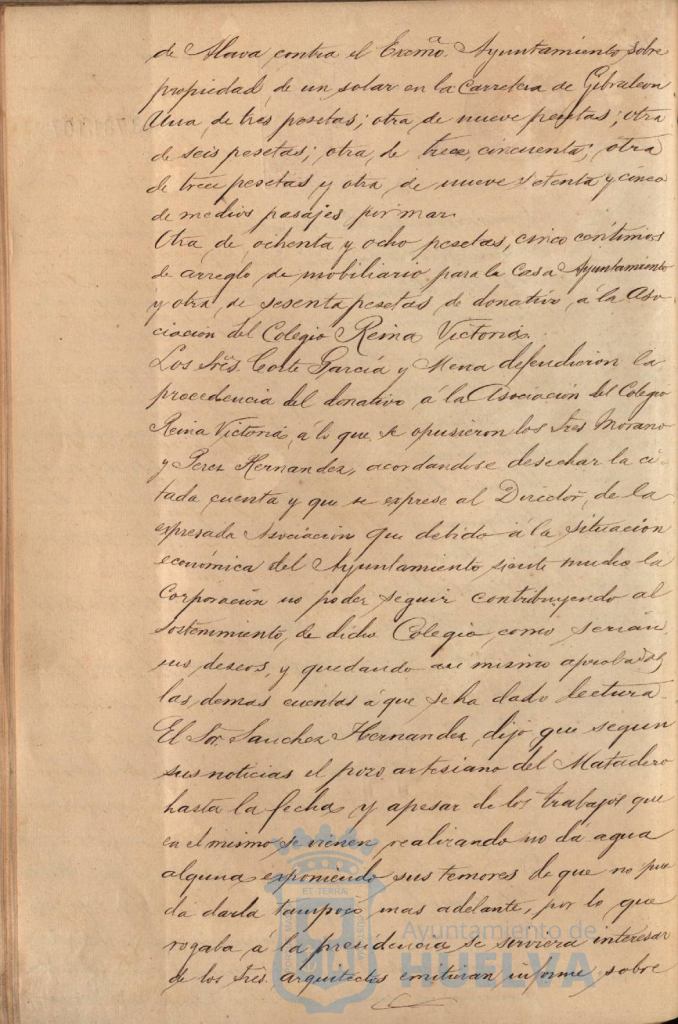 de Alava contra el Excmo. Ayuntamiento sobre
propiedad de un solar en la Carretera de Gibraleon
Una, de tres pesetas; otra de nueve pesetas; otra
de seis pesetas; otra, de trece, cincuenta; otra
de trece pesetas y otra de nueve setenta y cinco
de medios pasajes por mar.
Otra de ochenta y ocho pesetas, cinco centimos
de arreglo de mobiliario para la Casa Ayuntamiento
y otra, de sesenta pesetas de donativo á la Aso-
ciacion del Colegio Reina Victoria.
Los Sres. Corte Garcia y Mena defendieron la
procedencia del donativo á la Asociación del Colegio
Reina Victoria, á lo que se opusieron los Sres Morano
y Perez Hernandez, acordandose desechar la ci-
tada cuenta y que se exprese al Director, de la
expresada Asociación que debido á la situación
económica del Ayuntamiento siente mucho la
Corporación no poder seguir contribuyendo al
sostenimiento, de dicho Colegio como serian
sus deseos, y quedando asi mismo aprobadas
las demas cuentas á que se ha dado lectura.
El Sor. Sanchez Hernandez, dijo que segun
sus noticias el pozo artesiano del Matadero
hasta la fecha y apesar de los trabajos que
en el mismo se vienen realizando no da agua
alguna exponiendo sus temores de que no pue
da darla tampoco mas adelante, por lo que
rogaba á la presidencia se sirviera interesar
de los Sres. arquitectos emitieran informe sobre
Ayuntamiento de
HUELVA